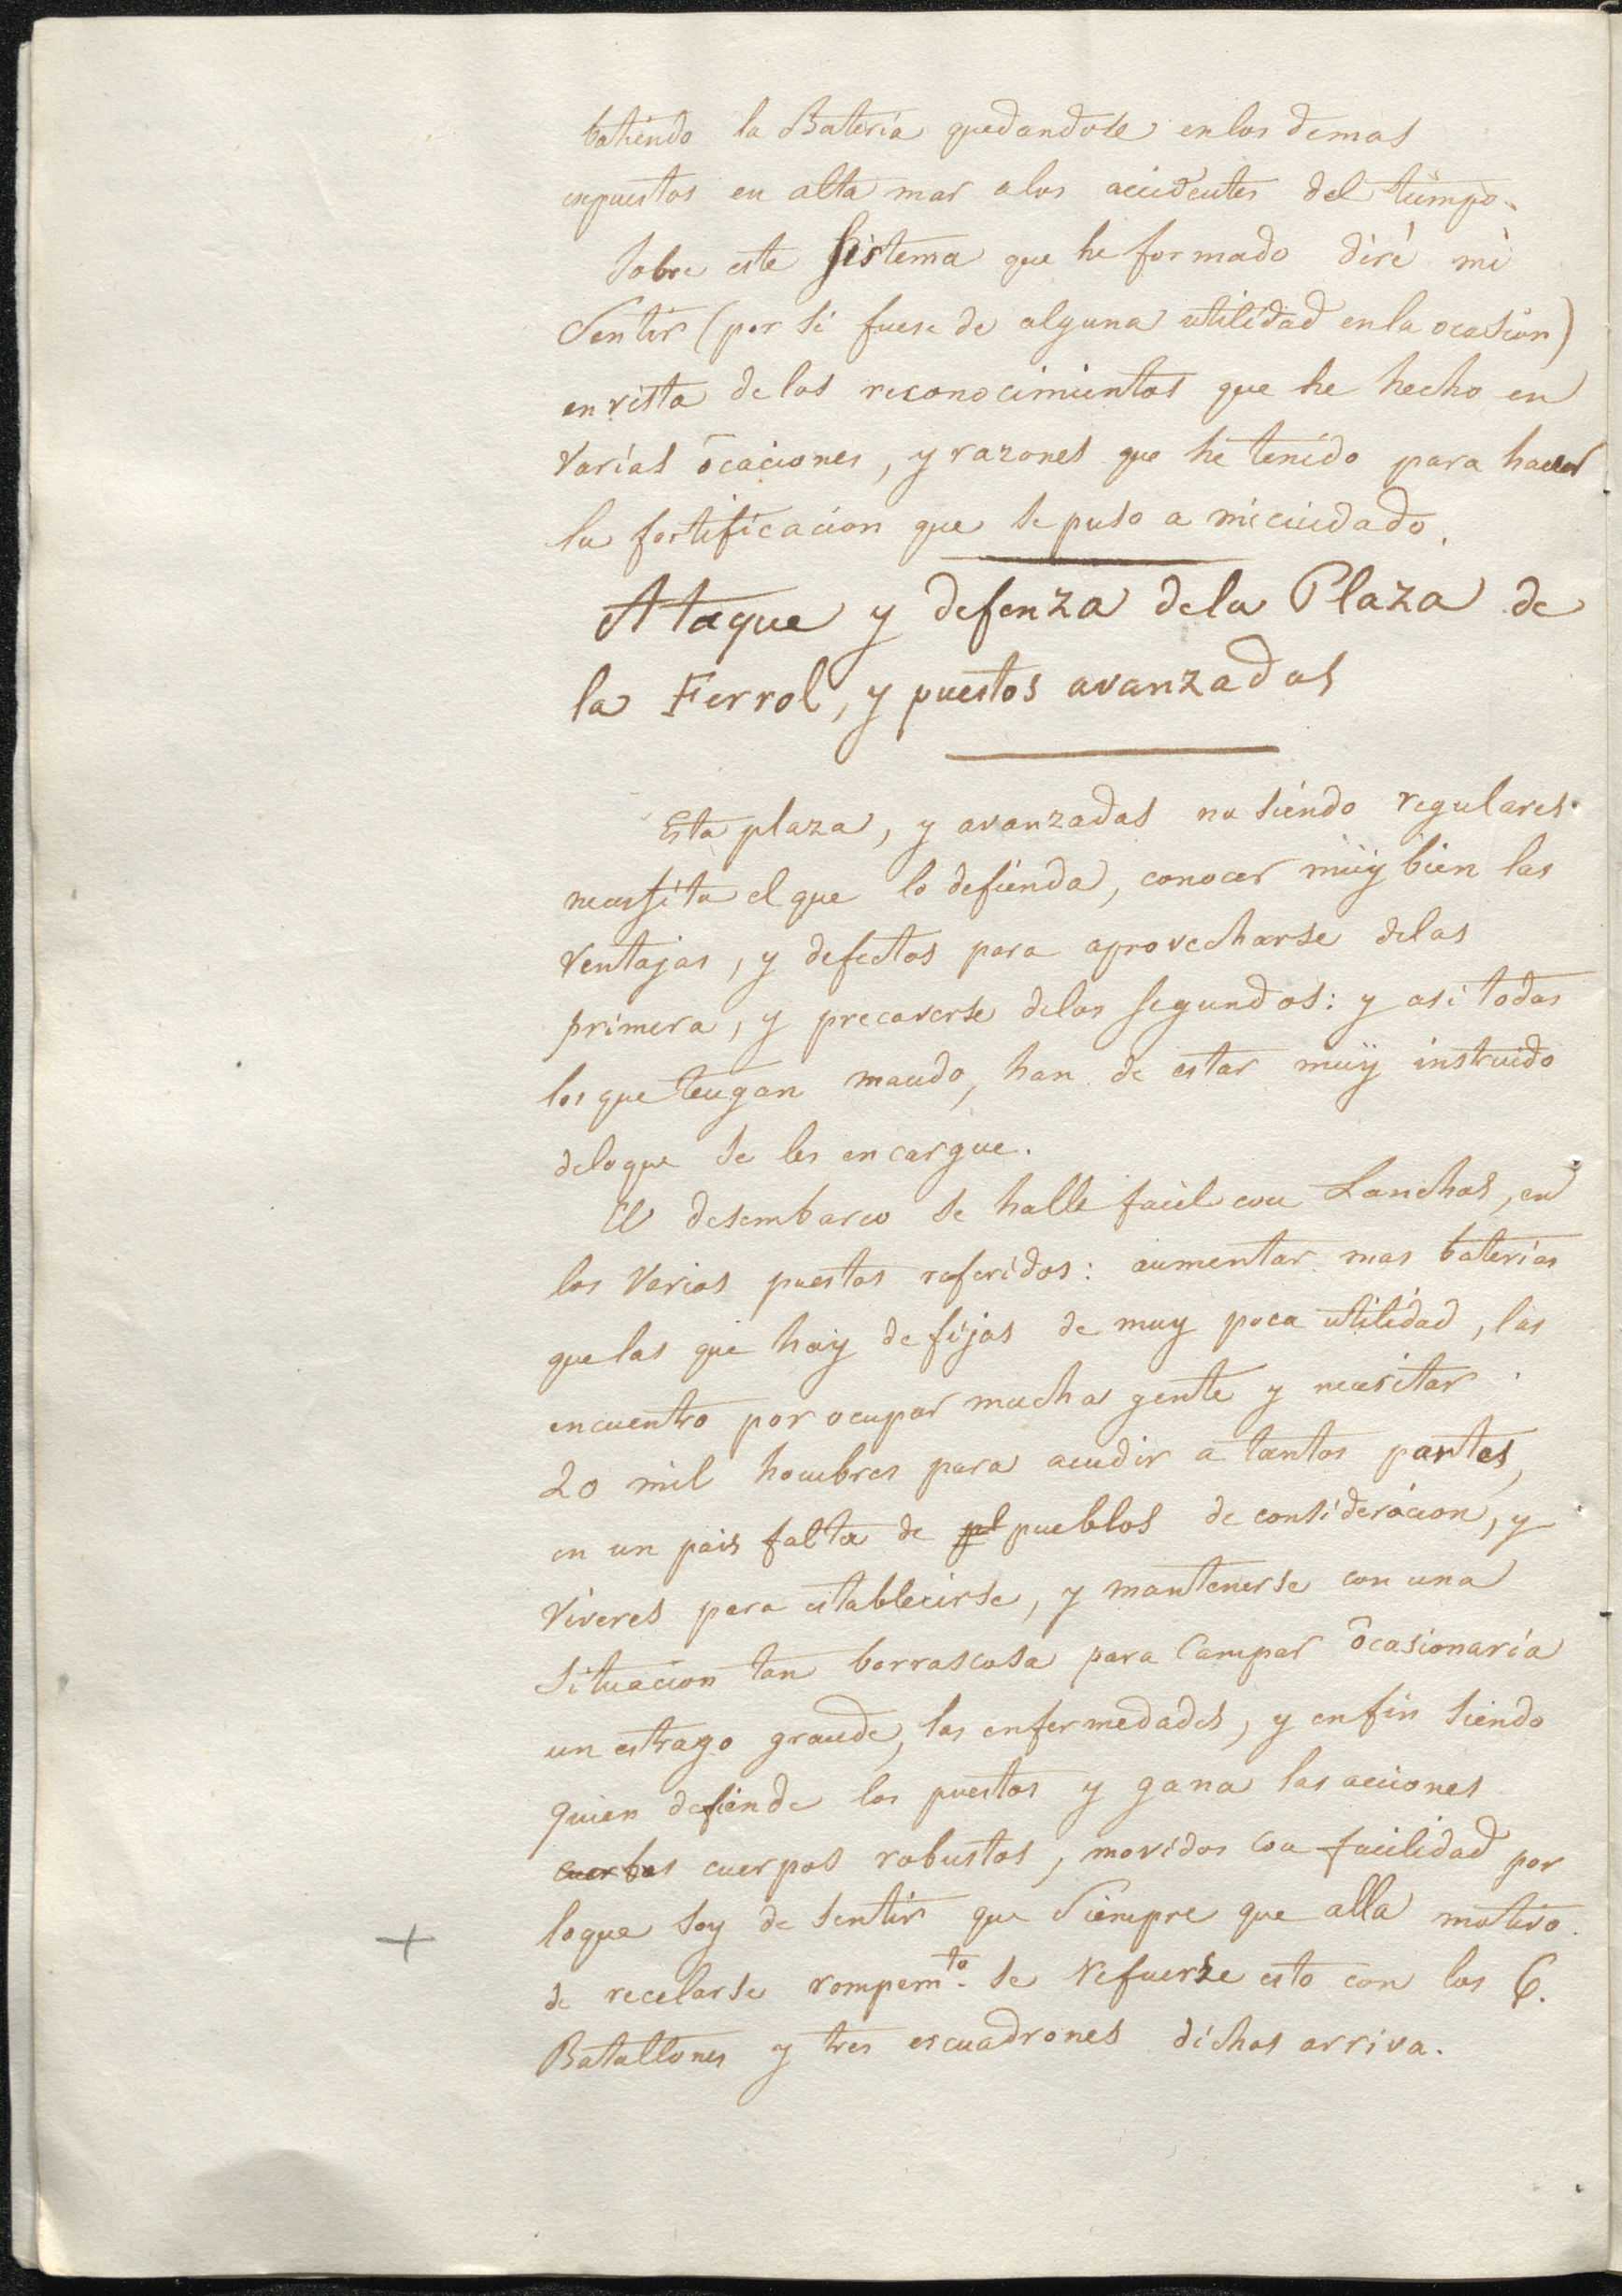 batiendo la Bateria quedandose en los demas
expuestos en alta mar a los accidentes del tiempo.
Sobre este Sistema que he formado diré mi
Sentir (por si fuese de alguna utilidad en la ocasion)
en vista de los reconocimientos que he hecho en
varias ócaciones, y razones que he tenido para hacer
la fortificacion que se puso a mi cuidado.
Ataque y defenza dela Plaza de
la Ferrol, y puestos avanzados
Esta plaza, y avanzadas no siendo regulares
necessita el que lo defienda, conocer müy bien las
ventajas, y defectos para aprovecharse delas
primera, y precaverse delos segundos: y asi todos
los que tengan mando, han de estar müy instruido
delo que se les encargue.
El desembarco se halle facil con Lanchas, en
los varios puestos referidos: aumentar mas baterias
que las que hay de fijas de muy poca utilidad, las
encuentro por ocupar mucha gente y necesitar
20 mil hombres para acudir a tantos partes,
en un pais falta de pl pueblos de consideracion, y
viveres para establecirse, y mantenerse con una
situacion tan borrascosa para Campar ócasionaria
un estrago grande, las enfermedades, y en fin siendo
quien defiende los puestos y gana las acciones
cuerbos cuerpos robustos, movidos con facilidad por
lo que soy de sentir que Siempre que alla motivo
+ de recelarse rompem.to se refuerze esto con los 6.
Batallones y tres escuadrones dichos arriva.